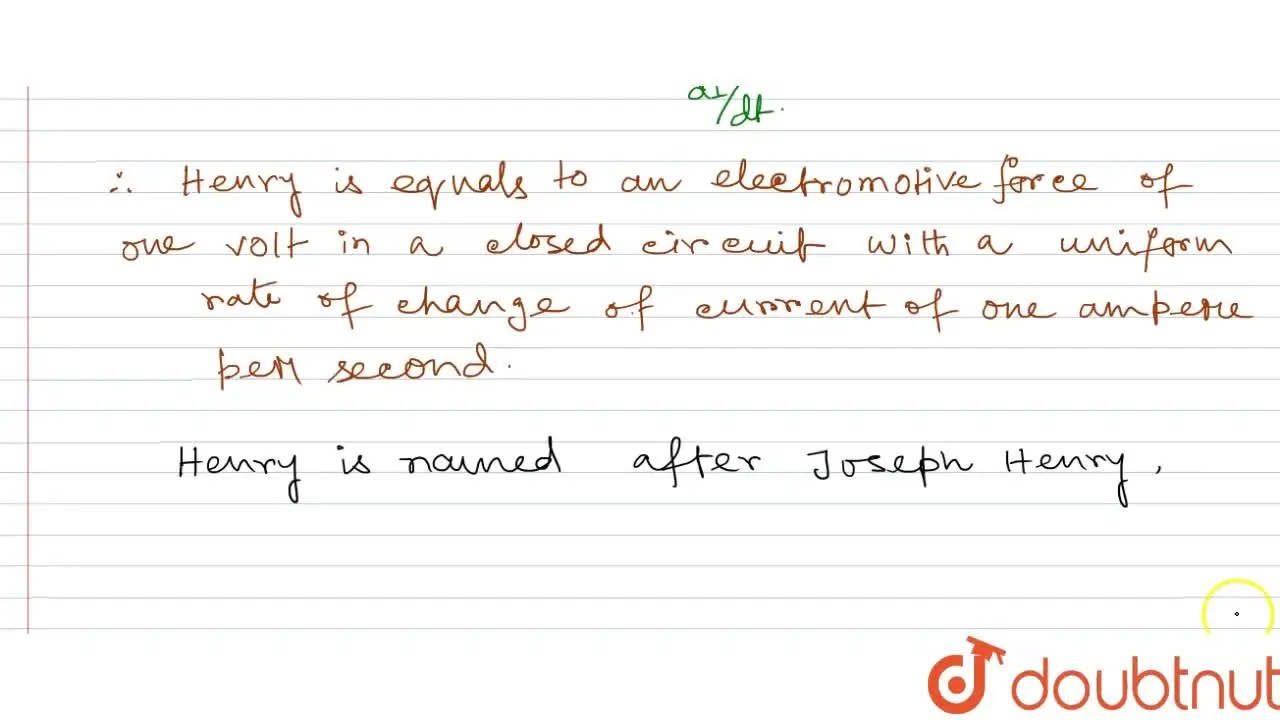 /dt.
∴ Henry is equals to an electromotive force of
one volt in a closed circuit with a uniform
rate of change of current of one ampere
per second.
Henry is named after Joseph Henry,
doubtnut